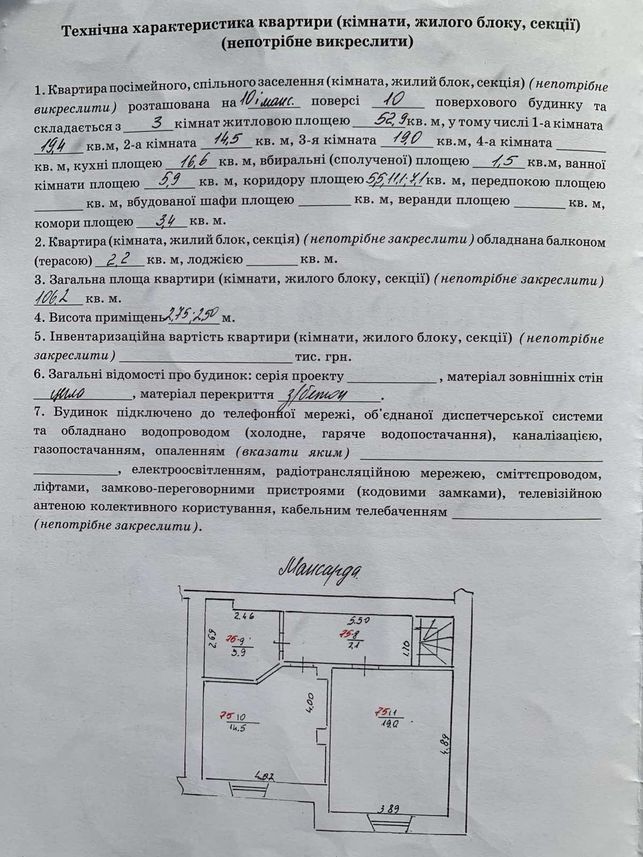 Технічна характеристика квартири (кімнати, жилого блоку, секції)
(непотрібне викреслити)
1. Квартира посімейного, спільного заселення (кімната, жилий блок, секція) (непотрібне
викреслити) розташована на 10 і манс. поверсі 10 поверхового будинку та
складається з 3 кімнат житловою площею 52,9 кв. м, у тому числі 1-а кімната
19,4 кв.м, 2-а кімната 14,5 кв. м, 3-я кімната 19,0 кв.м, 4-а кімната ______
кв. м, кухні площею 16,6 кв. м, вбиральні (сполученої) площею 1,5 кв.м, ванної
кімнати площею 5,9 кв. м, коридору площею 5,5; 11,1; 7,1 кв. м, передпокою площею
______ кв. м, вбудованої шафи площею ______ кв. м, веранди площею ______ кв. м,
комори площею 3,4 кв. м.
2. Квартира (кімната, жилий блок, секція) (непотрібне закреслити) обладнана балконом
(терасою) 2,2 кв. м, лоджією ______ кв. м.
3. Загальна площа квартири (кімнати, жилого блоку, секції) (непотрібне закреслити)
106,2 кв. м.
4. Висота приміщень 2,75; 2,50 м.
5. Інвентаризаційна вартість квартири (кімнати, жилого блоку, секції) (непотрібне
закреслити) ______ тис. грн.
6. Загальні відомості про будинок: серія проекту ______, матеріал зовнішніх стін
______, матеріал перекриття з/бетон.
7. Будинок підключено до телефонної мережі, об'єднаної диспетчерської системи
та обладнано водопроводом (холодне, гаряче водопостачання), каналізацією,
газопостачанням, опаленням (вказати яким) ______
______, електроосвітленням, радіотрансляційною мережею, сміттєпроводом,
ліфтами, замково-переговорними пристроями (кодовими замками), телевізійною
антеною колективного користування, кабельним телебаченням ______
(непотрібне закреслити).
Мансарда
2.46 5.50
2.69 75-9 75-8 1.20
5.9 7.1
4.00
75-10 75-11
14.5 19.0
4.89
4.02
3.89